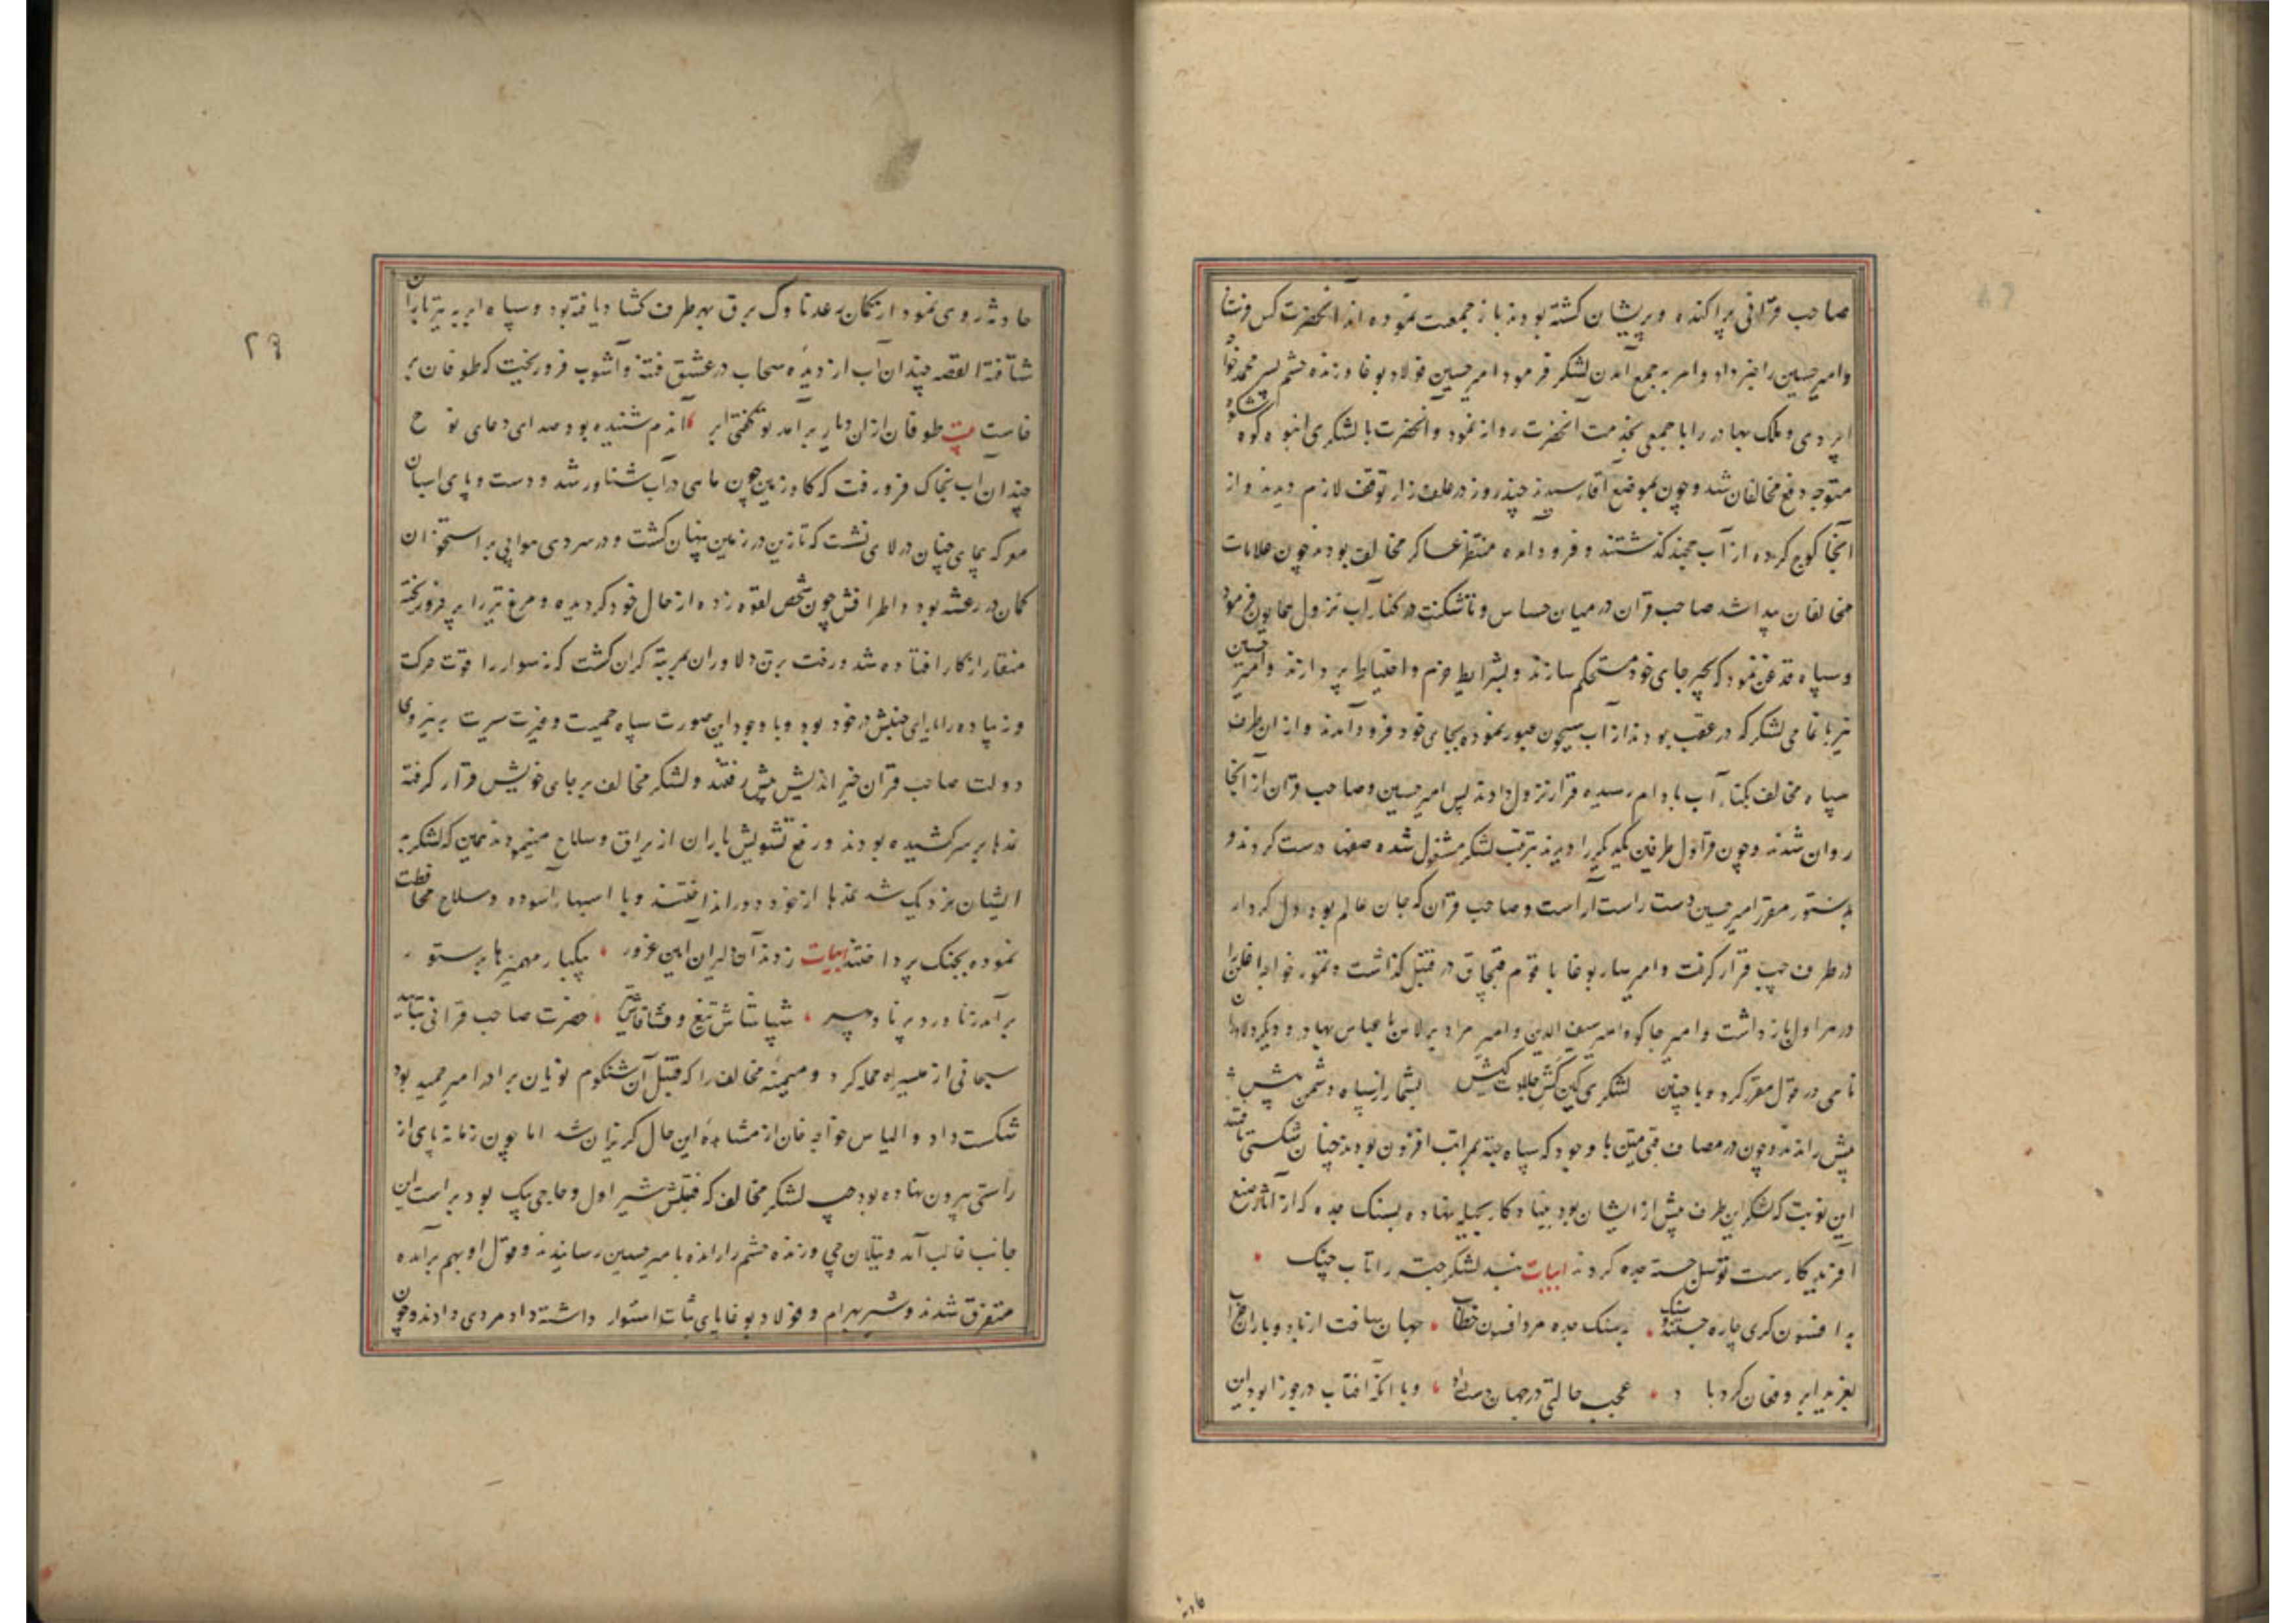 صاحب قرانی پراکنده و پریشان کشته بودند باز جمعیت نموده اند آنحضرت کس فرستاد
وامیر حسین را خبر داد و امر به جمع آمدن لشکر فرمود امیر حسین فولاد بوغا و زنده حشم پسر محمد خواجه
اپردی و ملک بهادر را با جمعی بخدمت آنحضرت روانه نمود و آنحضرت با لشکری انبوه کوه شکوه
متوجه دفع مخالفان شد و چون بموضع آقار رسیدند چند روز در علف زار توقف لازم دیدند و از
آنجا کوچ کرده از آب خجند کذشتند و فرود آمده منتظر عساکر مخالف بودند چون علامات
مخالفان پیدا شد صاحب قران در میان چناس و تاشکنت در کنار آب نزول همایون فرمود
و سپاه قدغن نمود که چپر جای خود مستحکم سازند و بشرایط حزم و احتیاط پردازند و امیر حسین
نیز با تمامی لشکر که در عقب بودند از آب سیحون عبور نموده بجای خود فرود آمدند و از ان طرف
سپاه مخالف بکنار آب بادام رسیده قرار نزول دادند پس امیر حسین و صاحب قران از آنجا
روان شدند و چون قراول طرفین یکدیکر را دیدند بترتیب لشکر مشغول شده صفها درست کردند و
بدستور مقرر امیر حسین دست راست آراست و صاحب قران که جان عالم بود دل کردار
در طرف چپ قرار کرفت و امیر ساربوغا با قوم قبچاق در قنبل کذاشت و تمور خواجه اغلن را
در هراول باز داشت و امیر جاکو و امیر سیف الدین و امیر مراد برلاس با عباس بهادر و دیکر دلاوران
نامی در قول مقرر کرد و با چنان لشکری کین کش جلادت کیش بشمار از سپاه دشمن بیش
پیش راندند و چون در مصاف قبی متین با وجود که سپاه جته بمراتب افزون بودند چنان شکستی یافتند
این نوبت که لشکر این طرف بیش از ایشان بود بنیاد کار بحیله نهاده بسنک جده که از آثار صنع
آفریدکار ست توسل جسته جده کردند ابیات نبد لشکر جته را تاب جنک
به افسون کری چاره جستند ز سنک بسنک جده مرد افسون خطاب جهان ساخت از باد و باران خراب
بغرید ابر و فغان کرد باد عجب حالتی در جهان دست داد و با آنکه آفتاب در جوزا بود این
حادثه
۲۹
حادثه روی نمود از کمان رعد ناوک برق بهر طرف کشاد یافته بود و سپاه ابر به تیر باران
شتافته القصه چندان آب از دیده سحاب در عشق فتنه و آشوب فرو ریخت که طوفان بر
خاست بیت طوفان ازان دیار برآمد تو کفتی ابر آندم شنیده بود صدای دعای نوح
چندان آب بخاک فرو رفت که کاو زمین چون ماهی در آب شناور شد و دست و پای اسبان
معرکه پمای چنان در لای نشست که تا زین در زمین پنهان کشت و در سردی هوا پی بر استخوان
کمان در رعشه بود و اطرافش چون شخص لقوه زده از حال خود کردیده و مرغ تیر را پر فرو ریخته
منقار از کار افتاده شد و رخت برق دلاوران بمرتبه کران کشت که نه سوار را قوت حرکت
و نه پیاده را یارای جنبش در خود بود و با وجود این صورت سپاه حمیت و غیرت سیرت به نیروی
دولت صاحب قران خیر اندیش پیش رفتند و لشکر مخالف بر جای خویش قرار کرفته
نمدها بر سر کشیده بودند و رفع تشویش باران از یراق و سلاح مینمودند همین که لشکر به
ایشان نزدیک شد نمدها از خود دور انداختند و با اسبهای آسوده و سلاح محافظت
نموده بجنک پرداختند ابیات زدند آن دلیران آیین غرور یکبار مهمیزها بر ستور
برآمد ز ناورد برنا و پیر شپاشاش تیغ و فشافاش تیر حضرت صاحب قرانی بتایید
سبحانی از میسره حمله کرد و میمنه مخالف را که قنبل آن شنکوم نویان برادر امیر حمید بود
شکست داد و الیاس خواجه خان از مشاهده این حال کریزان شد اما چون زمانه پای از
راستی بیرون نهاده بود چپ لشکر مخالف که قنبلش شیر اول و حاجی بیک بود بر راست این
جانب غالب آمد و تیلان چی و زنده حشم را رانده با میر حسین رسانیدند و قول او بهم برآمده
متفرق شدند و شیر بهرام و فولاد بوغا پای ثبات استوار داشته داد مردی دادند و چون